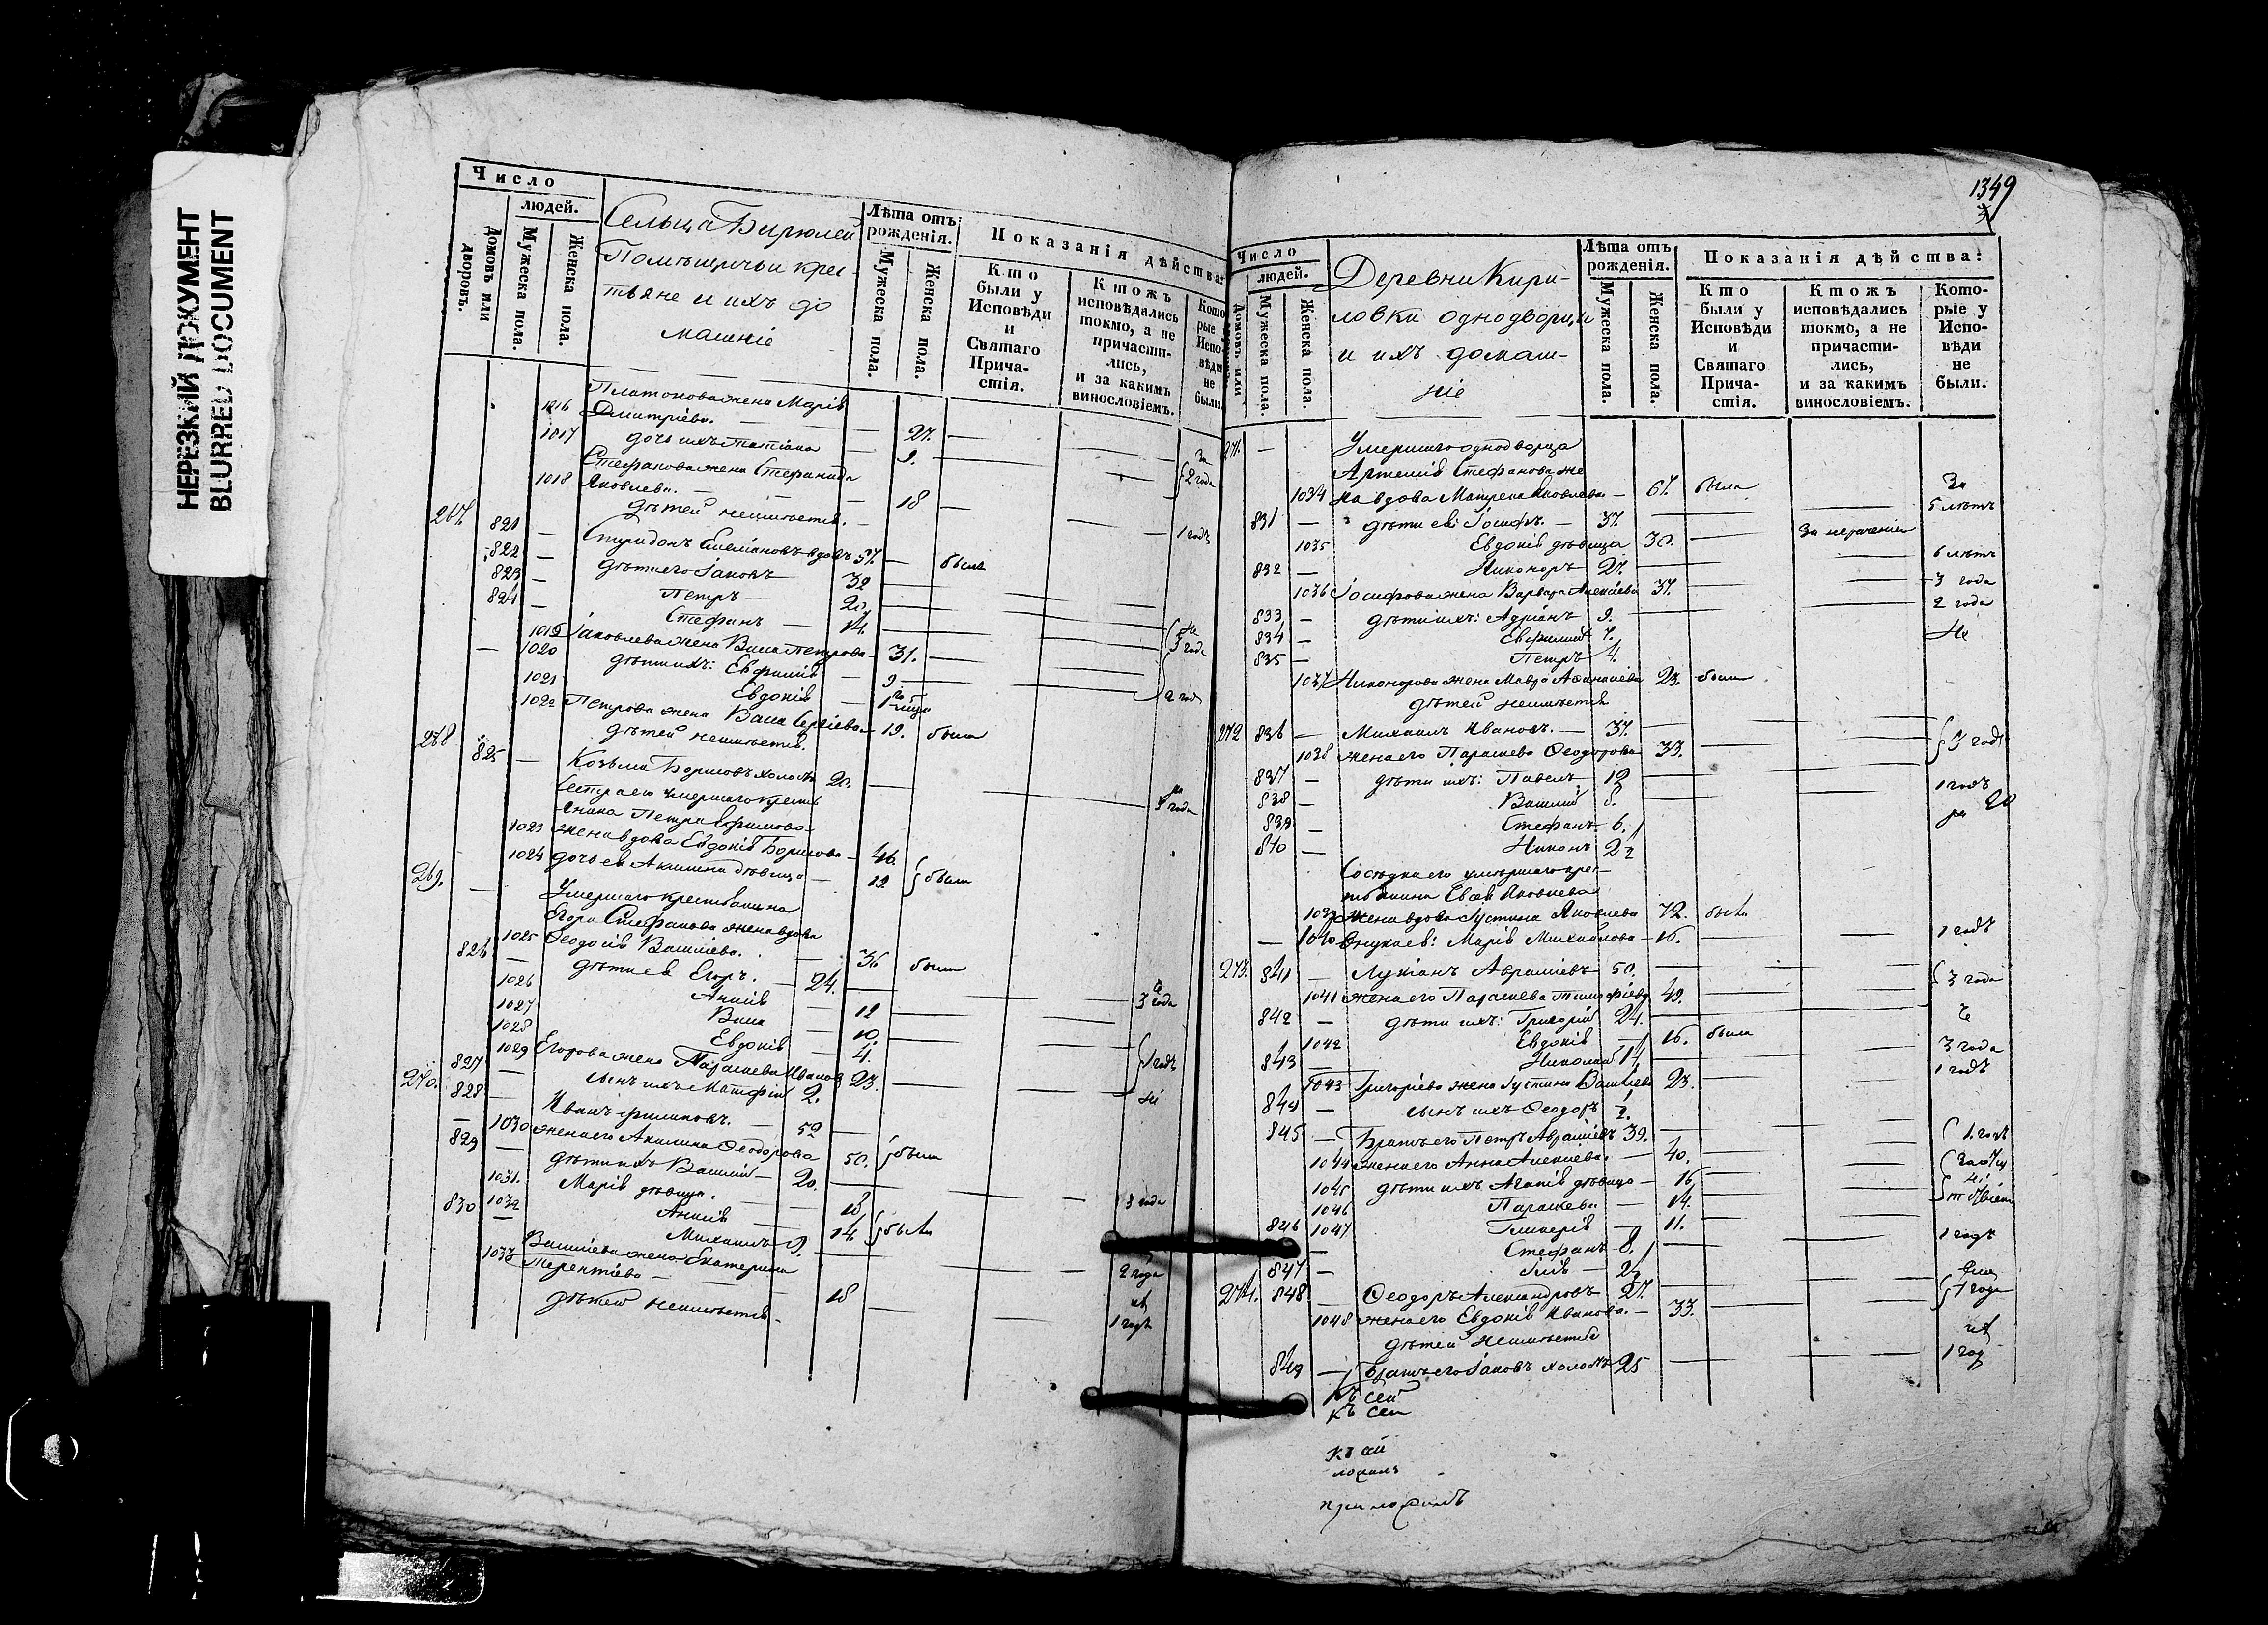 НЕРЕЗКИЙ ДОКУМЕНТ
BLURRED DOCUMENT
Число
людей.
Домовъ или дворовъ.
Мужеска пола.
Женска пола.
Сельца Бирюлей
Помѣщичьи крес-
тьяне и ихъ до
машніе
Лѣта отъ рожденія.
Мужеска пола.
Женска пола.
Показанія дѣйства:
Кто были у Исповѣди и Святаго Причастія.
Ктожъ исповѣдались токмо, а не причастились, и за какимъ винословіемъ.
Которые у Исповѣди не были.
Платонова жена Марія
1016 Дмитріева. 27.
1017 дочь ихъ Татіана 9.
Стефанова жена Стефанида
1018 Яковлева. 18 2 года
дѣтей неимѣется.
267. 821 Спиридонъ вдовъ 57. былъ 1 годъ
822 дѣти его Іаковъ 32
823 Петръ 20
824 Стефанъ 14.
1019 Іаковлева жена Васса Петрова 31.
1020 дѣти ихъ: Евфимія 9
1021 Евдокія 1
1022 Петрова жена Васса Сергіева 19. была
дѣтей неимѣется.
268 825 Козьма Борисовъ холостъ 20.
Сестра его умершаго кресть
янина Петра Ефимова
1023 жена вдова Евдокія Борисова 46.
1024 дочь ея Акилина дѣвица 12 были
269. Умершаго крестьянина
Егора Стефанова жена вдова
1025 Ѳеодосія Васильева. 56 была
826 дѣти ея Егоръ. 24. 3 года
1026 Анисія 12
1027 Васса 10.
1028 Евдокія 4.
1029 Егорова жена Парасцева Иванова 23. 1 годъ
827 сынъ ихъ Матфій 2.
270. 828 Иванъ Филиповъ. 52
1030 жена его Акилина Ѳеодорова 50. были
829 дѣти ихъ Василій 20. 3 года
1031. Марія дѣвица. 18
1032 Анисія 14. были
830 Михаилъ 9.
Васильева жена Екатерина
1033 Терентіева 18 2 года
дѣтей неимѣется 1 годъ
1349
Число
людей.
Домовъ или
Мужеска пола.
Женска пола.
Деревни Кири-
ловки однодворцы
и ихъ домаш-
ніе
Лѣта отъ рожденія.
Мужеска пола.
Женска пола.
Показанія дѣйства:
Кто были у Исповѣди и Святаго Причастія.
Ктожъ исповѣдались токмо, а не причастились, и за какимъ винословіемъ.
Которые у Исповѣди не были.
271. Умершаго однодворца
Артемія Стефанова же
1034 на вдова Матрена Яковлева 67. была За
831 дѣти ея: Іосифъ. 37. 5 лѣтъ
1035 Евдокія дѣвица 30. За нерачені 6 лѣтъ
832 Никоноръ 27. 3 года
1036 Іосифова жена Варвара Алексіева 37. 2 года
833 дѣти ихъ: Адріанъ 9.
834 Евфимій 7.
835 Петръ 4.
1037 Никонорова жена Мавра Аѳанасіева 23. была
дѣтей неимѣется
272 836 Михаилъ Ивановъ. 37.
1038 жена его Парасцева Ѳеодорова 33. 3 года
837 дѣти ихъ: Павелъ 12 1 годъ
838 Василій 8.
839 Стефанъ 6.
840 Никонъ 2
Сосѣдка его умершаго крес-
тьянина Евсея Яковлева
1039 жена вдова Іустина Яковлева 72. была
1040 Внука ея: Марія Михайлова 16. 1 годъ
273. 841 Лукіанъ Авраміевъ 50.
1041 жена его Парасцева Тимофіева 49. 3 года
842 дѣти ихъ: Григорій 24.
1042 Евдокія 16. была
843 Николай 14 3 года
1043 Григорьева жена Іустина Васильева 23. 1 годъ
844 сынъ ихъ Ѳеодоръ 1.
845 Братъ его Петръ Авраміевъ 39. 1. годъ
1044 жена его Анна Алексіева. 40.
1045 дѣти ихъ Агапія дѣвица 16
1046 Парасцева 14.
1047 Гликерія 11.
846 Стефанъ 8. 1 годъ
847 Илія 2
274. 848 Ѳеодоръ Александровъ 27.
1048 жена его Евдокія Иванова. 33. 1 годъ
дѣтей неимѣется
849 Братъ его Іаковъ холостъ 25 1 год
Къ сей
къ сей
къ сей